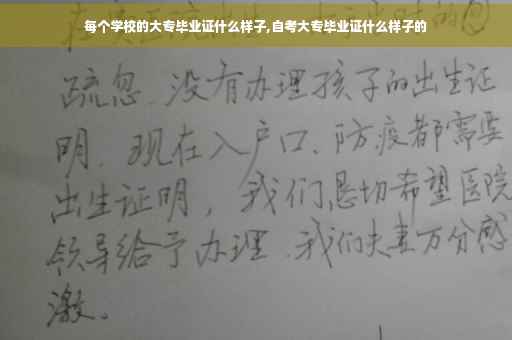 每个学校的大专毕业证什么样子,自考大专毕业证什么样子的
疏忽、没有办理孩子的出生证
明、现在入户口、防疫都需要
出生证明，我们恳切希望医院
领导给予办理、我们夫妻万分感
激。